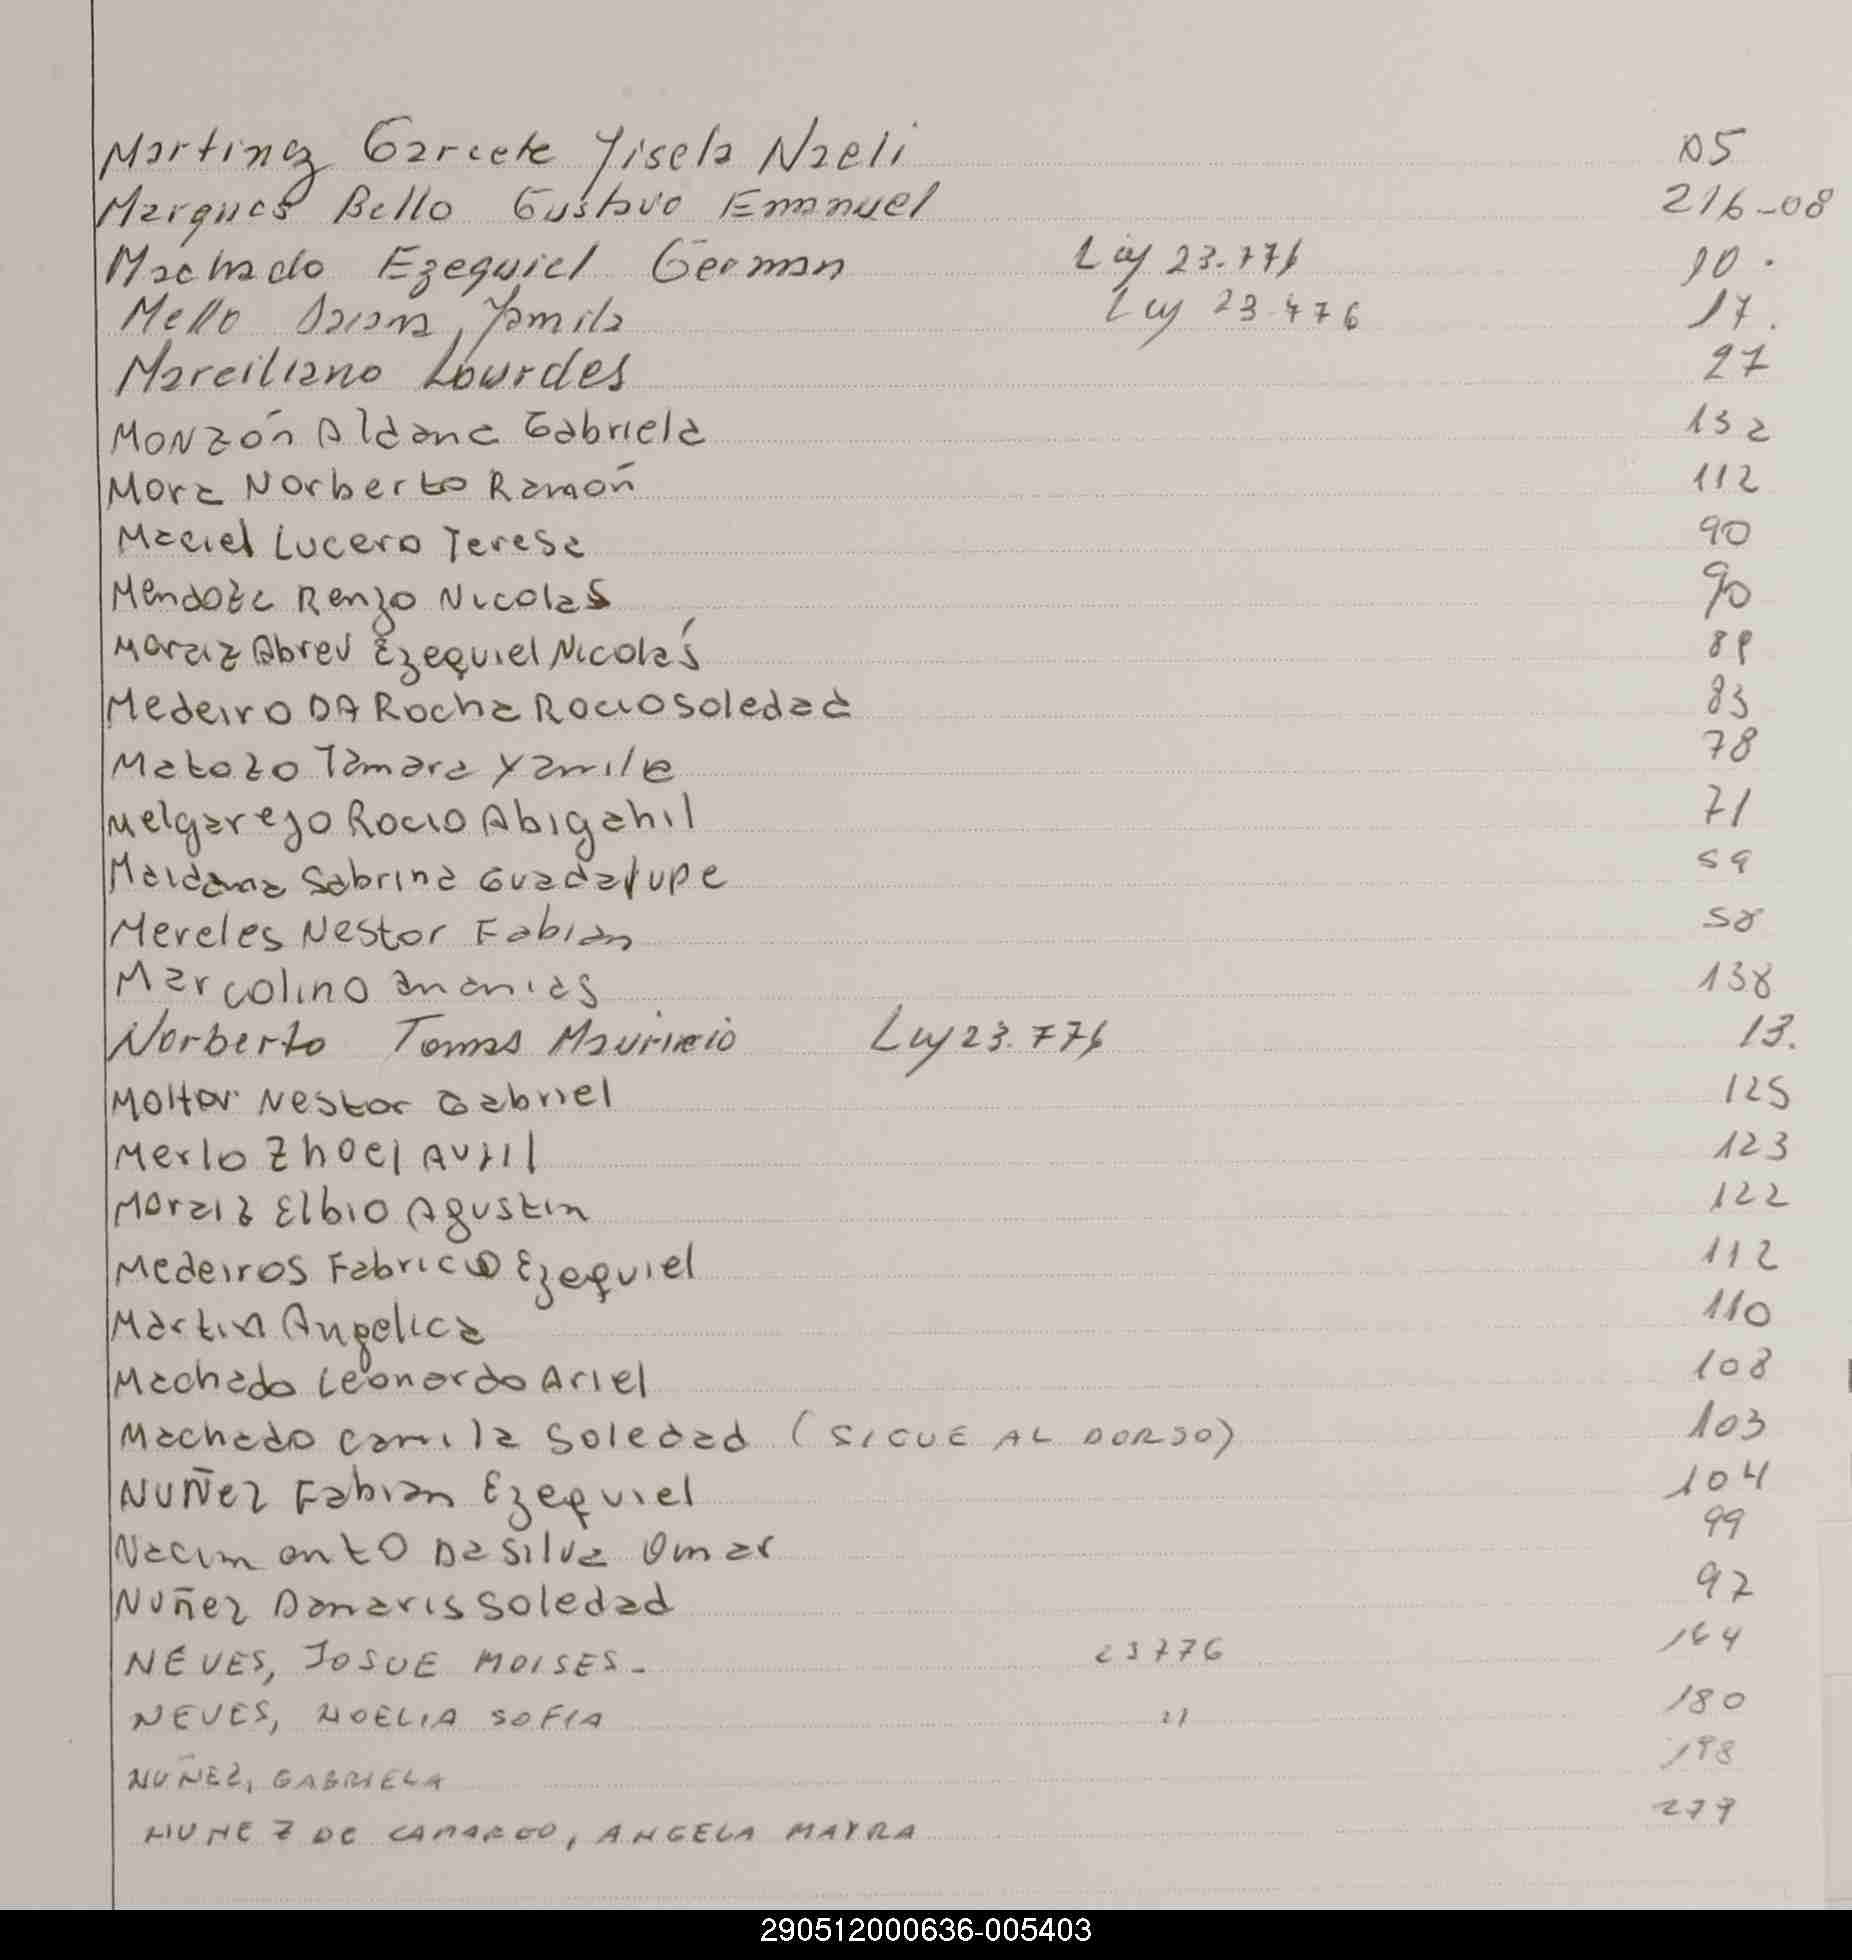 Martinez Garcete Yisela Naeli 05
Marques Bello Gustavo Emanuel 216-08
Machado Ezequiel German Ley 23.776 10.
Mello Daiana Yamila Ley 23.776 17.
Marciliano Lourdes 27
Monzón Aldana Gabriela 132
Mora Norberto Ramón 112
Maciel Lucero Teresa 90
Mendoza Renzo Nicolas 90
Moraiz Abreu Ezequiel Nicolás 89
Medeiro DA Rocha Rocio Soledad 83
Matozo Tamara Yamile 78
Melgarejo Rocio Abigahil 71
Maidana Sabrina Guadalupe 59
Mereles Nestor Fabian 58
Marcolino Ananias 138
Norberto Tomas Mauricio Ley 23.776 13.
Nestor Gabriel 125
Merlo Zhoel Avril 123
Moraiz Elbio Agustin 122
Medeiros Fabricio Ezequiel 112
Martin Angelica 110
Machado Leonardo Ariel 108
Machado Camila Soledad (SIGUE AL DORSO) 103
Nuñez Fabian Ezequiel 104
Nacimonto Da Silva Omar 99
Nuñez Damaris Soledad 97
NEVES, JOSUE MOISES- 23776 164
NEVES, NOELIA SOFIA " 180
NUÑEZ, GABRIELA 198
NUNEZ DE CAMARGO, ANGELA MAYRA 277
290512000636-005403